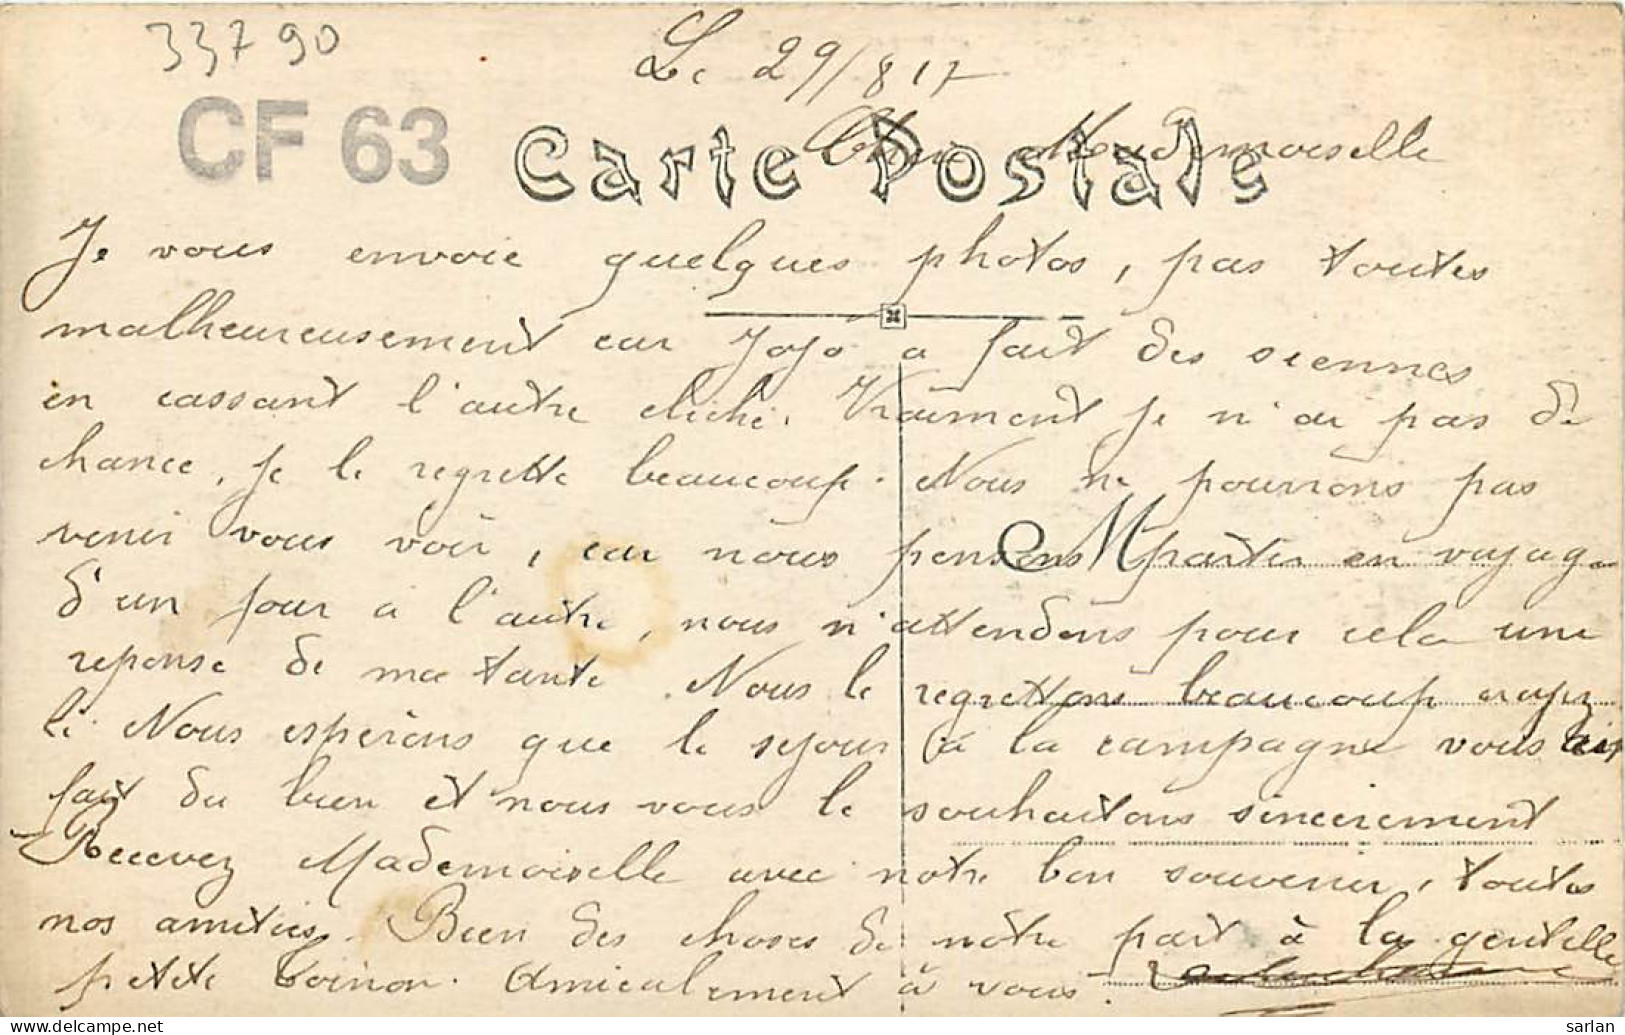 33790
Le 29/8 17
CF 63
Carte Postale
Chère Mademoiselle
Je vous envoie quelques photos, pas toutes
malheureusement car Jojo a fait des siennes
en cassant l'autre cliché. Vraiment je n'ai pas de
chance, je le regrette beaucoup. Nous ne pourrons pas
venir vous voir, car nous pensons partir en voyage
M
d'un jour à l'autre, nous n'attendons pour cela une
reponse de ma tante. Nous le regrettons beaucoup croyez
le. Nous espérons que le sejour à la campagne vous
fait du bien et nous vous le souhaitons sincèrement
Recevez Mademoiselle avec notre bon souvenir, toutes
nos amitiés. Bien des choses de notre part à la gentille
petite Amicalement à vous.
delcampe.net
sarlan